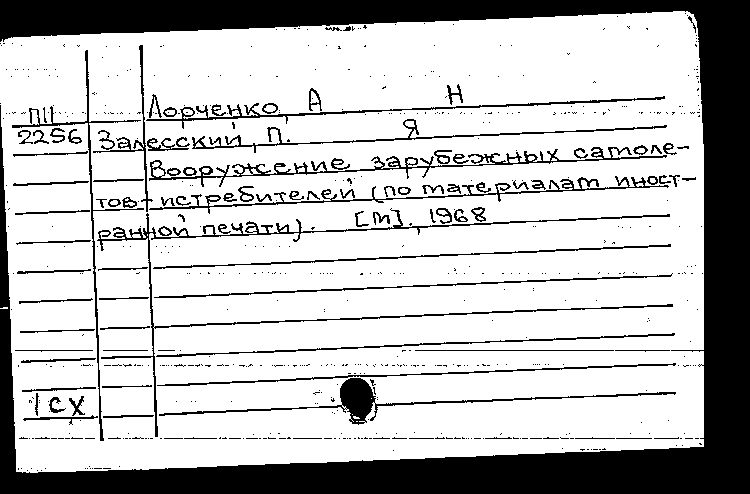 ПII Лорченко, А Н
2256 Залесский, П. Я
Вооружение зарубежных самоле-
тов-истребителей (по материалам иност-
ранной печати). [М]., 1968
1 сх